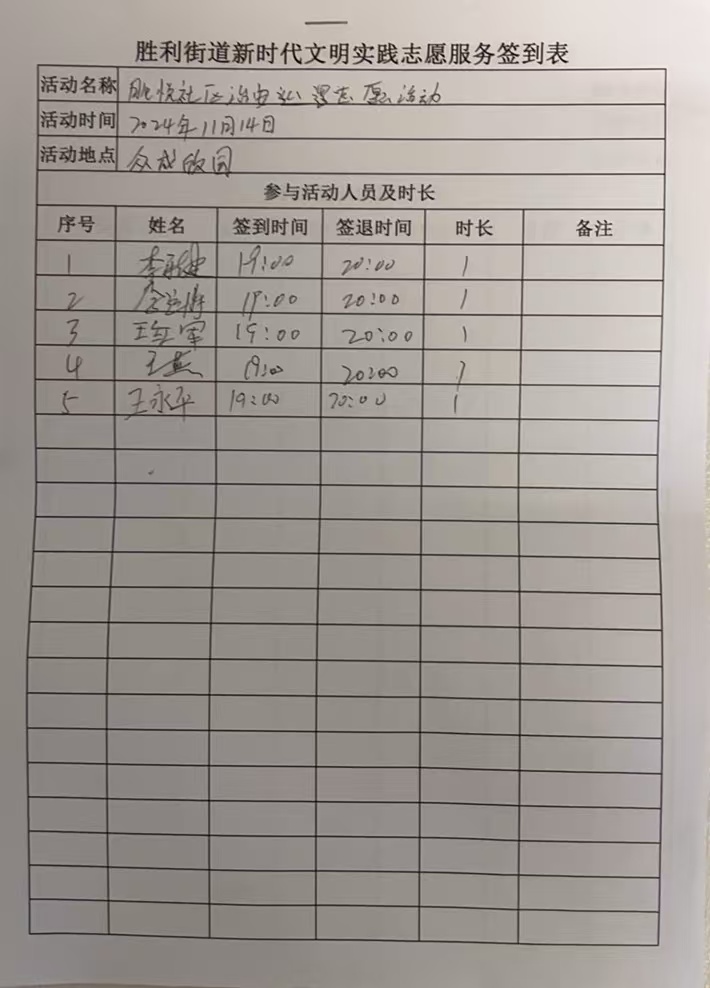 胜利街道新时代文明实践志愿服务签到表
活动名称 胜悦社区治安巡逻志愿活动
活动时间 2024年11月14日
活动地点 众成故园
参与活动人员及时长
序号 姓名 签到时间 签退时间 时长 备注
1 19:00 20:00 1
2 19:00 20:00 1
3 王红军 19:00 20:00 1
4 王燕 19:00 20:00 1
5 王永平 19:00 20:00 1